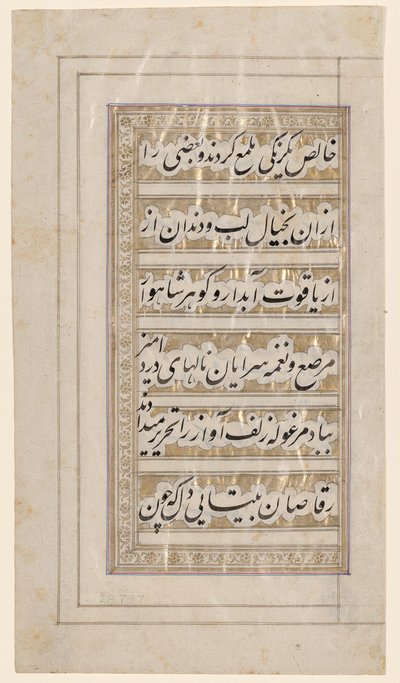 خالص یکرنکی ملمع کردند و بعضی را
ازان بخیال لب و دندان از
از یاقوت آبدار و کوهر شاهوار
مرصع و نغمه سرایان نالهای درد امیز
بباد مرغوله زلف آواز را تحریر میدادند
رقاصان به بیتابی دل که چون